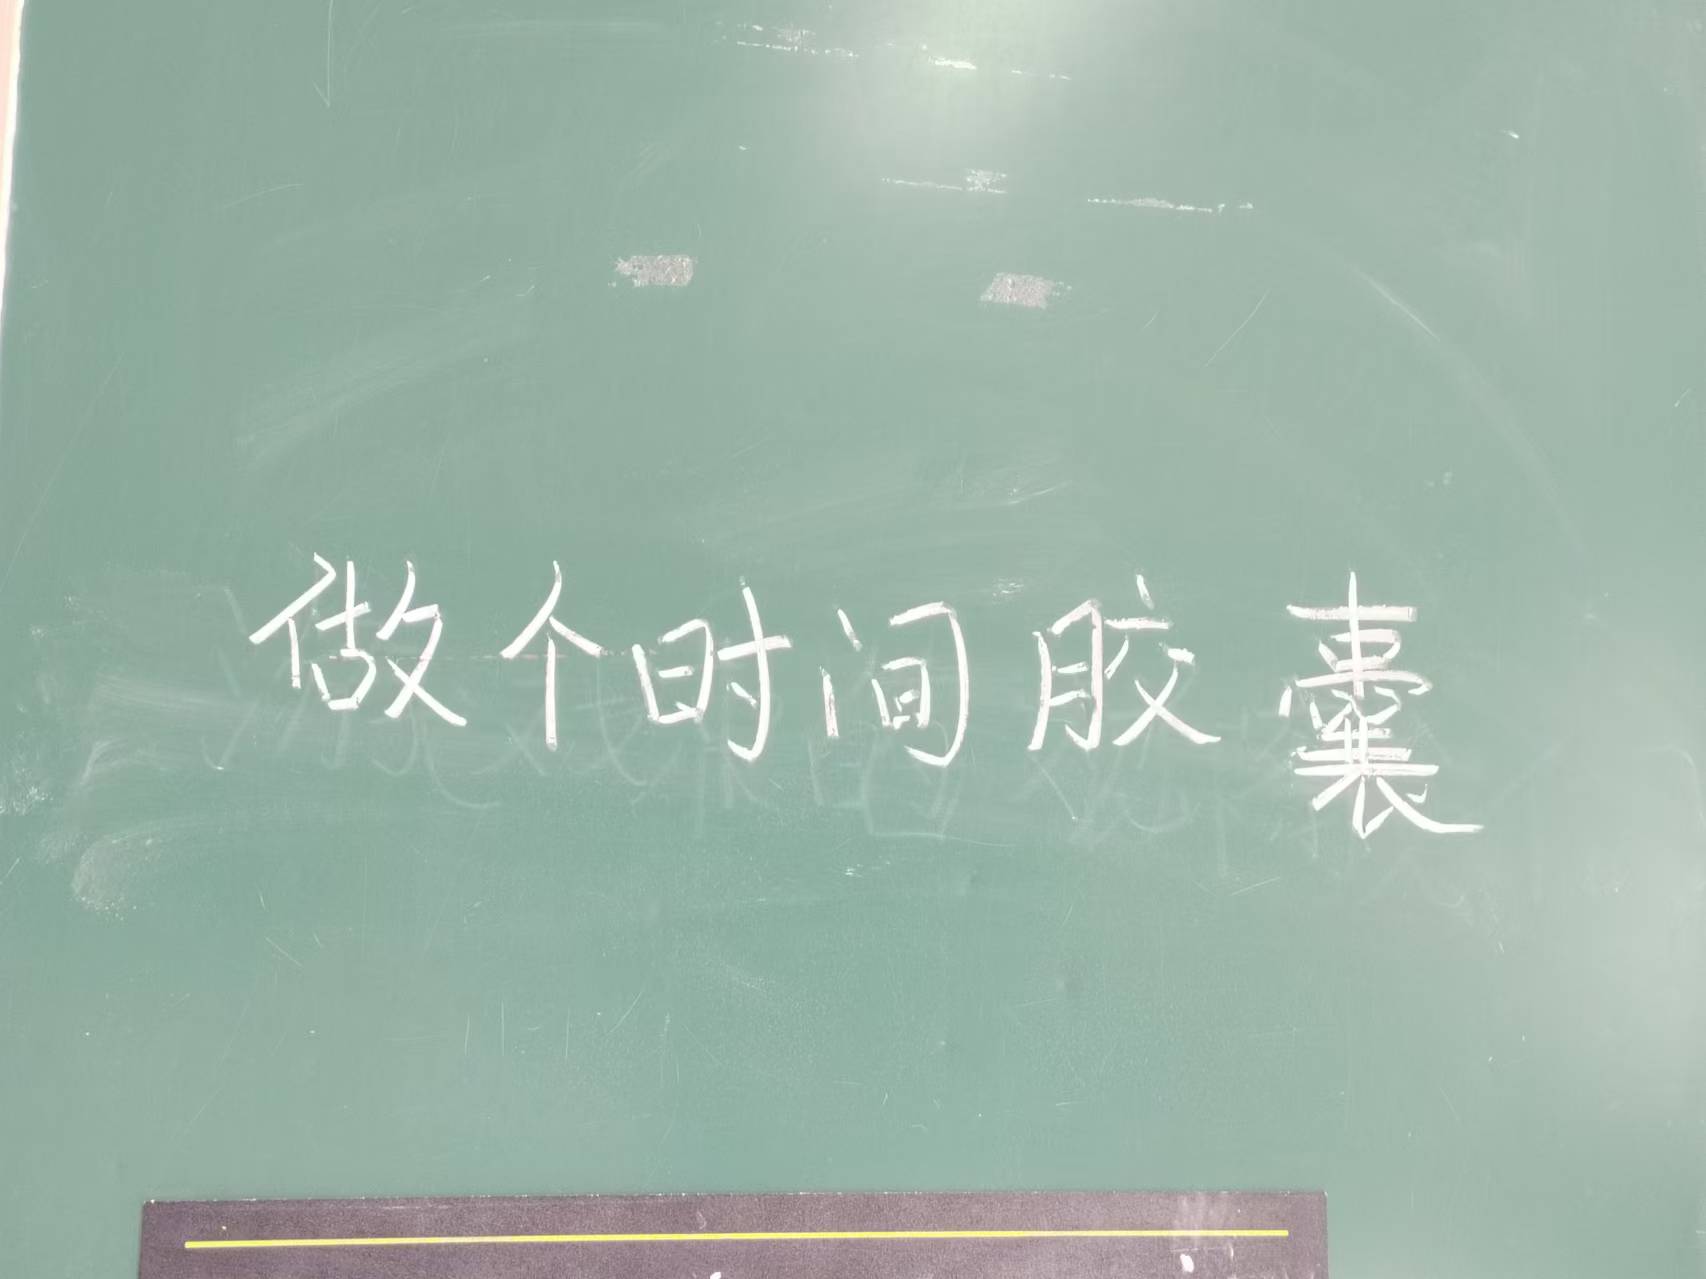 做个时间胶囊